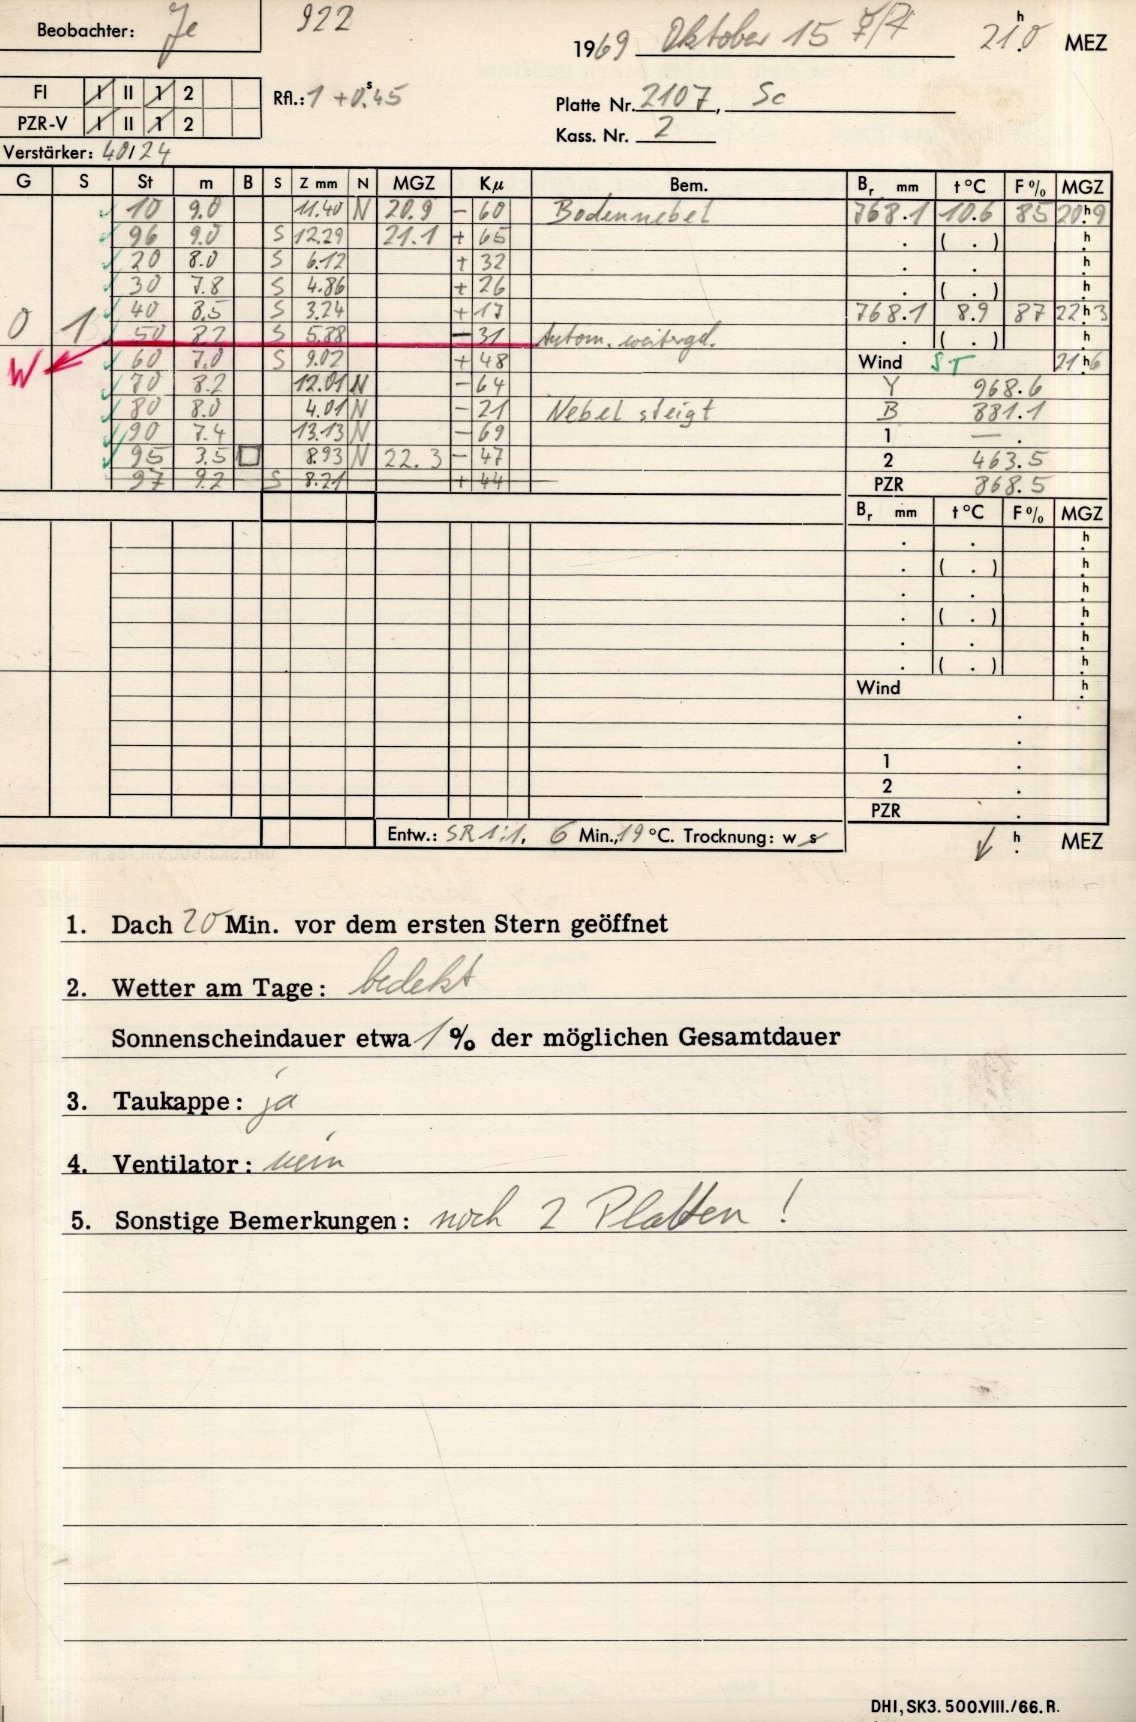 Beobachter: Je 922
1969 Oktober 15 21h.0 MEZ
FI I II 1 2 Rfl.: 1 +0s.45 Platte Nr. 2107, Sc
PZR-V I II 1 2 Kass. Nr. 2
Verstärker: 40/24
G S St m B S Z mm N MGZ Kμ Bem. Br mm t °C F % MGZ
10 9.0 11.40 N 20.9 - 60 Bodennebel 768.1 10.6 85 20h.9
96 9.0 S 12.29 21.1 + 65 . ( . ) h.
20 8.0 S 6.12 + 32 . . h.
30 7.8 S 4.86 + 26 . ( . ) h.
0 1 40 8.5 S 3.24 + 17 768.1 8.9 87 22h.3
50 8.2 S 5.88 - 31 Autom. weitergel. . ( . ) h.
W 60 7.0 S 9.02 + 48 Wind ST 21h.6
70 8.2 12.01 N - 64 Y 968.6
80 8.0 4.01 N - 21 Nebel steigt B 881.1
90 7.4 13.13 N - 69 1 — .
95 3.5 8.93 N 22.3 - 47 2 463.5
97 9.2 S 8.21 + 44 PZR 868.5
Br mm t °C F % MGZ
. . h.
. ( . ) h.
. . h.
. ( . ) h.
. . h.
. ( . ) h.
Wind h.
.
.
1 .
2 .
PZR .
Entw.: SR 1:1, 6 Min., 19 °C. Trocknung: w s h. MEZ
1. Dach 20 Min. vor dem ersten Stern geöffnet
2. Wetter am Tage: bedekt
Sonnenscheindauer etwa 1 % der möglichen Gesamtdauer
3. Taukappe: ja
4. Ventilator: nein
5. Sonstige Bemerkungen: noch 2 Platten !
DHI, SK3. 500.VIII./66. R.